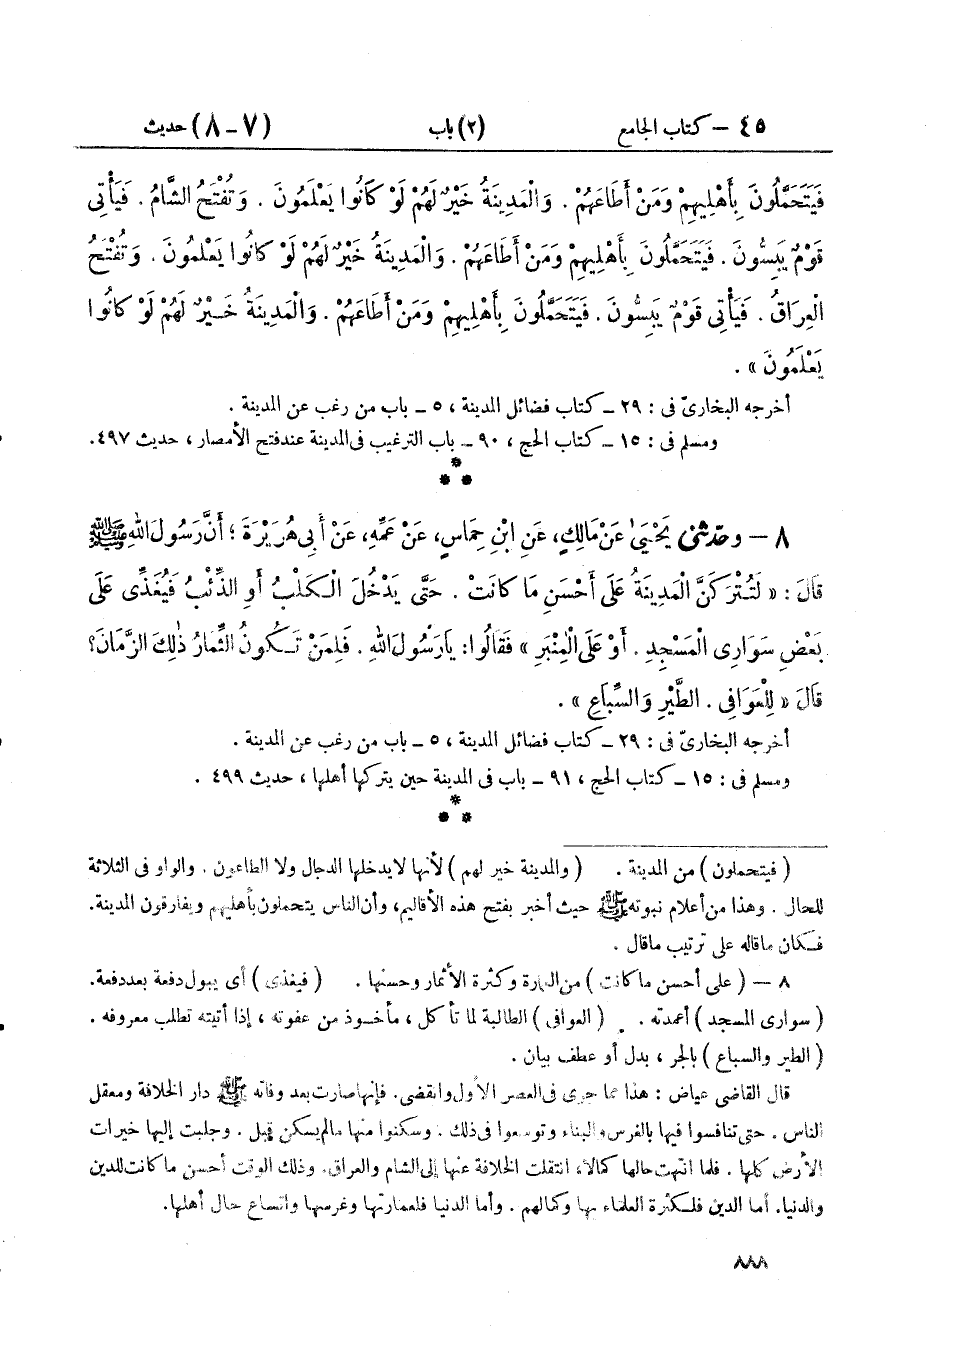 ٤٥ – كتاب الجامع (٢) باب (٧ – ٨) حديث
فَيَتَحَمَّلُونَ بِأَهْلِيهِمْ وَمَنْ أَطَاعَهُمْ . وَالْمَدِينَةُ خَيْرٌ لَهُمْ لَوْ كَانُوا يَعْلَمُونَ . وَتُفْتَحُ الشَّامُ . فَيَأْتِى
قَوْمٌ يَبِسُّونَ . فَيَتَحَمَّلُونَ بِأَهْلِيهِمْ وَمَنْ أَطَاعَهُمْ . وَالْمَدِينَةُ خَيْرٌ لَهُمْ لَوْ كَانُوا يَعْلَمُونَ . وَتُفْتَحُ
الْعِرَاقُ . فَيَأْتِى قَوْمٌ يَبِسُّونَ . فَيَتَحَمَّلُونَ بِأَهْلِيهِمْ وَمَنْ أَطَاعَهُمْ . وَالْمَدِينَةُ خَيْرٌ لَهُمْ لَوْ كَانُوا
يَعْلَمُونَ » .
أخرجه البخارىّ فى : ٢٩ – كتاب فضائل المدينة ، ٥ – باب من رغب عن المدينة .
ومسلم فى : ١٥ – كتاب الحج ، ٩٠ – باب الترغيب فى المدينة عند فتح الأمصار ، حديث ٤٩٧.
*
* *
٨ – وحدثنى يَحْيَىٰ عَنْ مَالِكٍ، عَنِ ابْنِ حِمَاسٍ، عَنْ عَمِّهِ، عَنْ أَبِى هُرَيْرَةَ ؛ أَنَّ رَسُولَ اللهِ ﷺ
قَالَ : « لَتُتْرَكَنَّ الْمَدِينَةُ عَلَى أَحْسَنِ مَا كَانَتْ . حَتَّى يَدْخُلَ الْكَلْبُ أَوِ الذِّئْبُ فَيُغَذِّى عَلَى
بَعْضِ سَوَارِى الْمَسْجِدِ . أَوْ عَلَى الْمِنْبَرِ » فَقَالُوا : يَا رَسُولَ اللهِ . فَلِمَنْ تَكُونُ الثِّمَارُ ذٰلِكَ الزَّمَانَ؟
قَالَ « لِلْعَوَافِى . الطَّيْرِ وَالسِّبَاعِ » .
أخرجه البخارىّ فى : ٢٩ – كتاب فضائل المدينة ، ٥ – باب من رغب عن المدينة .
ومسلم فى : ١٥ – كتاب الحج ، ٩١ – باب فى المدينة حين يتركها أهلها ، حديث ٤٩٩ .
*
* *
( فيتحملون ) من المدينة . ( والمدينة خير لهم ) لأنها لا يدخلها الدجال ولا الطاعون . والواو فى الثلاثة
للحال . وهذا من أعلام نبوته ﷺ حيث أخبر بفتح هذه الأقاليم، وأن الناس يتحملون بأهليهم ويفارقون المدينة.
فكان ما قاله على ترتيب ما قال .
٨ – ( على أحسن ما كانت ) من العمارة وكثرة الأثمار وحسنها . ( فيغذى ) أى يبول دفعة بعد دفعة.
( سوارى المسجد ) أعمدته . ( العوافى ) الطالبة لما تأكل ، مأخوذ من عفوته ، إذا أتيته تطلب معروفه .
( الطير والسباع ) بالجر ، بدل أو عطف بيان .
قال القاضى عياض : هذا مما جرى فى العصر الأول وانقضى. فإنها صارت بعد وفاته ﷺ دار الخلافة ومعقل
الناس . حتى تنافسوا فيها بالغرس والبناء وتوسعوا فى ذلك . وسكنوا منها ما لم يسكن قبل . وجلبت إليها خيرات
الأرض كلها . فلما انتهت حالها كمالا، انتقلت الخلافة عنها إلى الشام والعراق. وذلك الوقت أحسن ما كانت للدين
والدنيا. أما الدين فلكثرة العلماء بها وكمالهم . وأما الدنيا فلعمارتها وغرسها واتساع حال أهلها.
٨٨٨